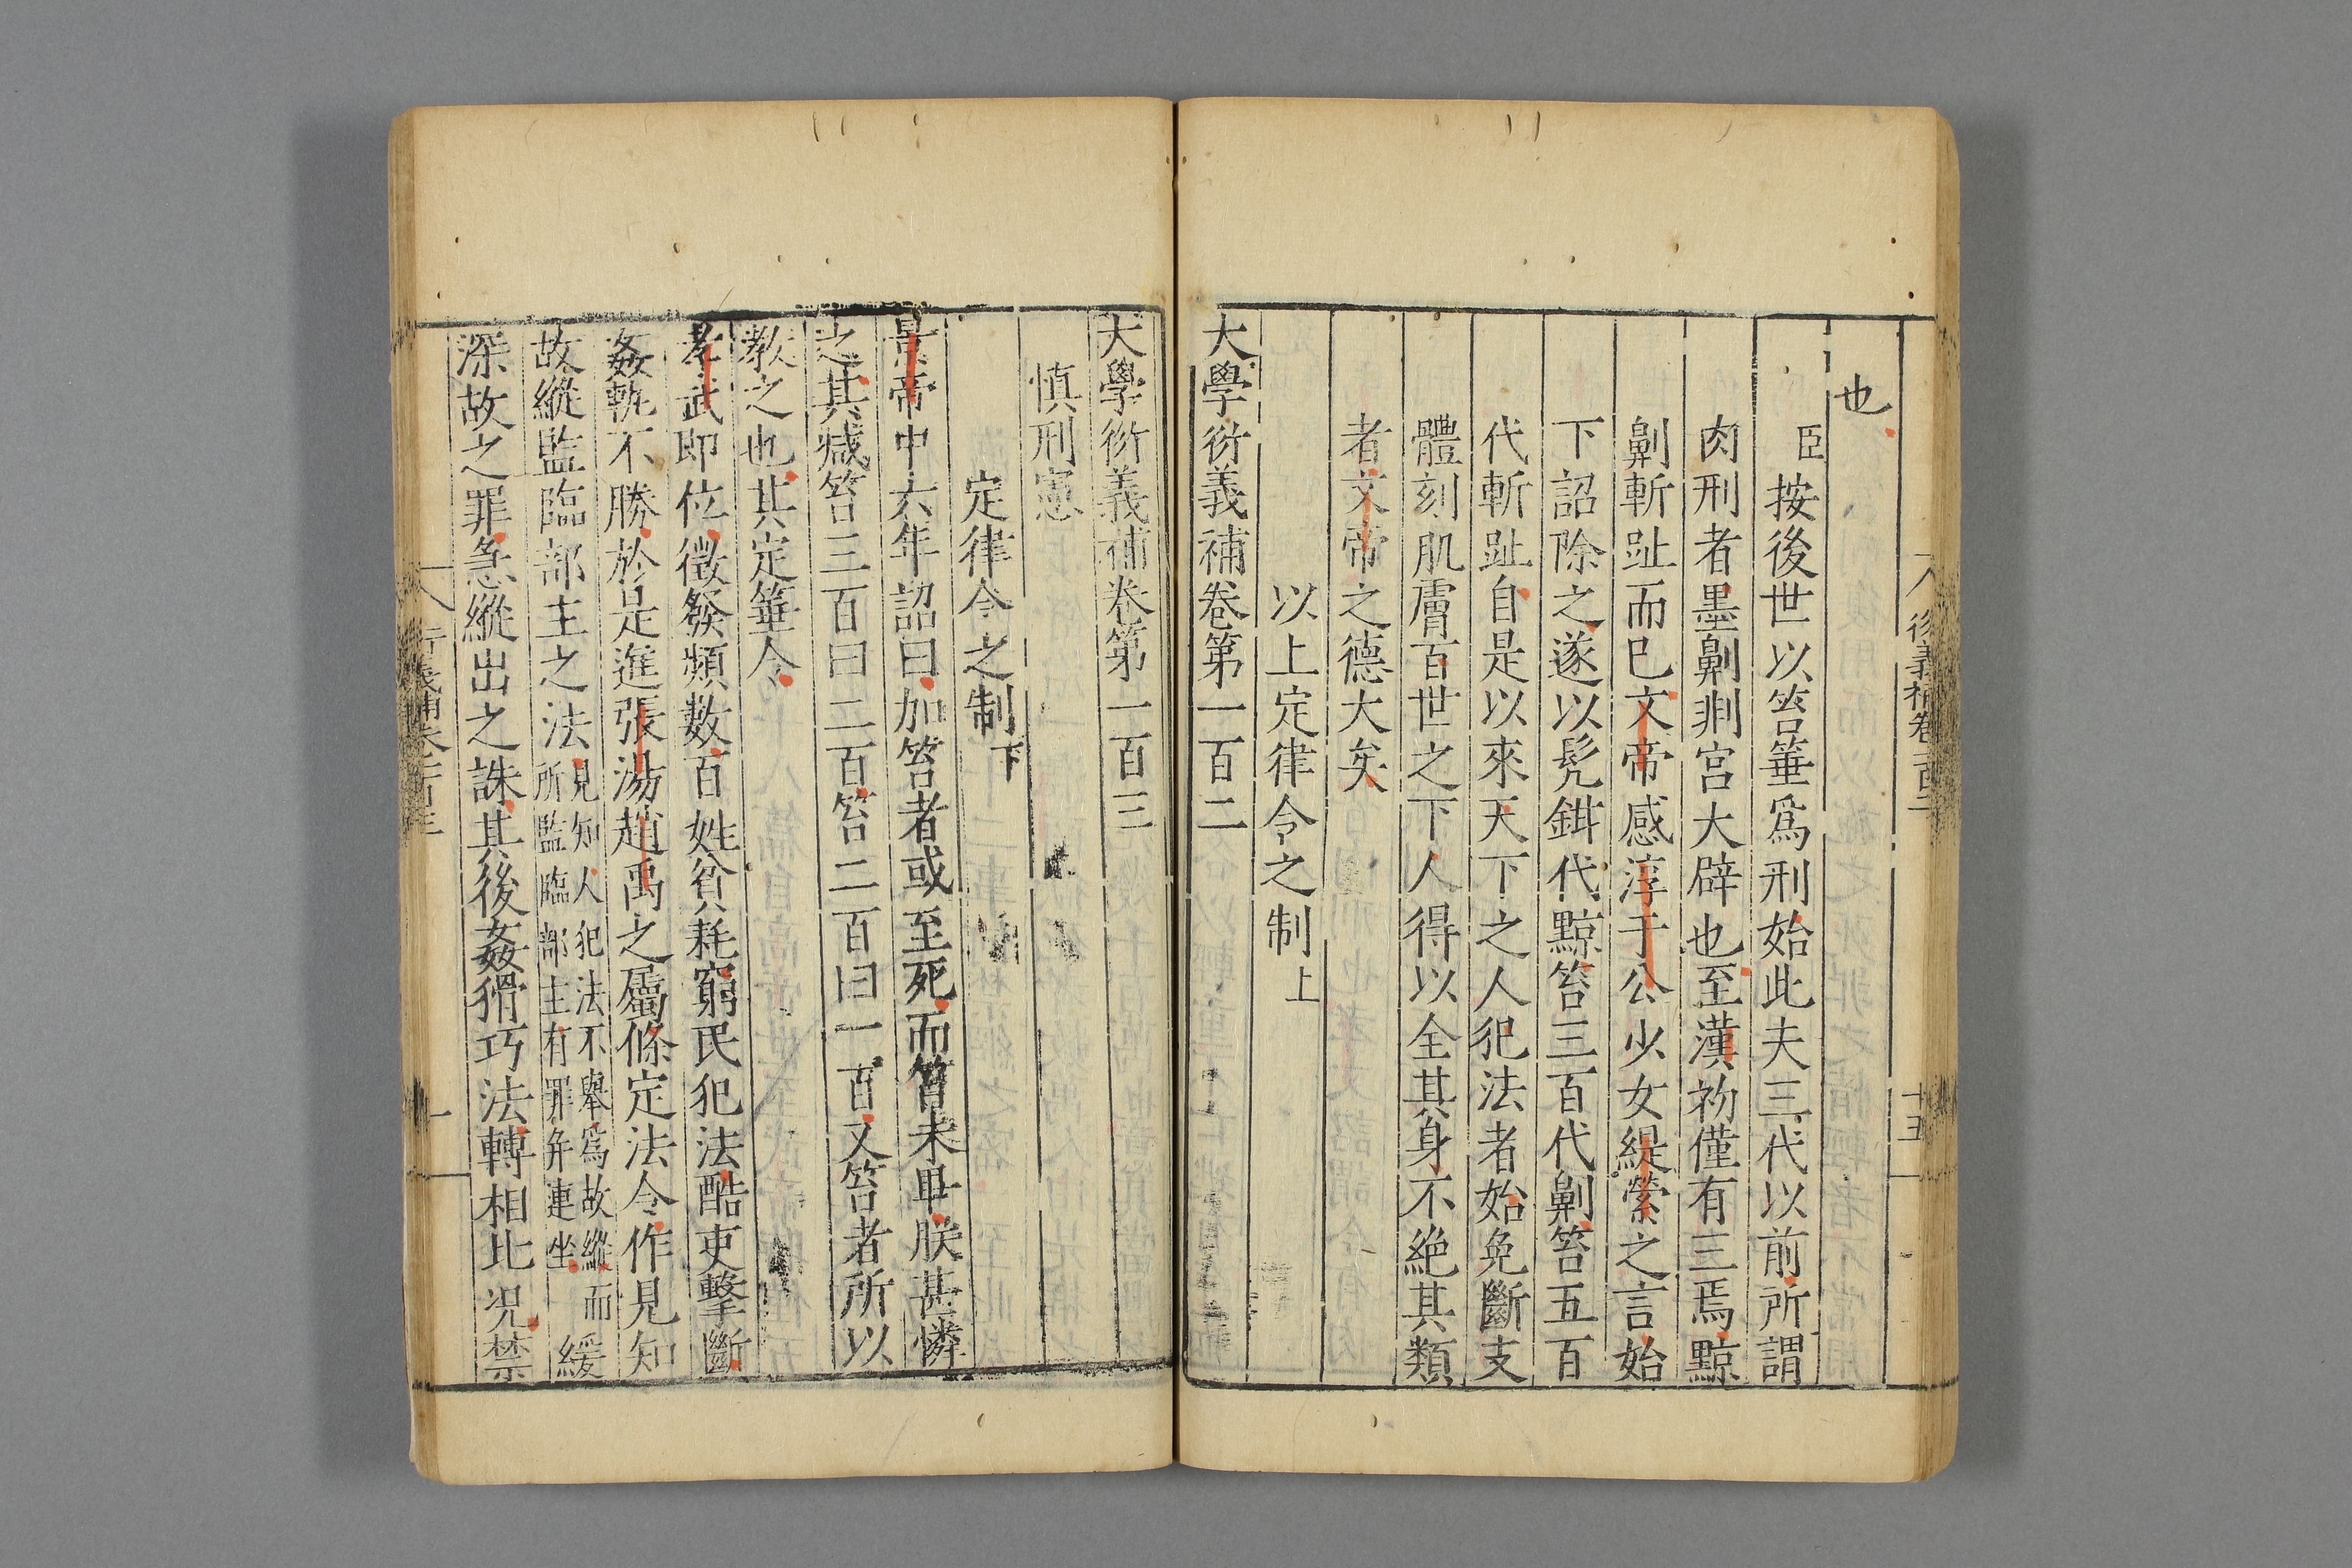 也
臣按後世以笞箠爲刑始此夫三代以前所謂
肉刑者墨劓剕宮大辟也至漢初僅有三焉黥
劓斬趾而已文帝感淳于公少女緹縈之言始
下詔除之遂以髡鉗代黥笞三百代劓笞五百
代斬趾自是以來天下之人犯法者始免斷支
體刻肌膚百世之下人得以全其身不絶其類
者文帝之德大矣
以上定律令之制上
大學衍義補卷第一百二
大學衍義補卷第一百三
慎刑憲
定律令之制下
景帝中六年詔曰加笞者或至死而笞未畢朕甚憐
之其减笞三百曰二百笞二百曰一百又笞者所以
教之也其定箠令
孝武即位徵發煩數百姓貧耗窮民犯法酷吏擊斷
姦軌不勝於是進張湯趙禹之屬條定法令作見知
故縱監臨部主之法見知人犯法不舉爲故縱而所監臨部主有罪并連坐緩
深故之罪急縱出之誅其後姦猾巧法轉相比况禁
衍義補卷一百二
十五
衍義補卷一百三
一